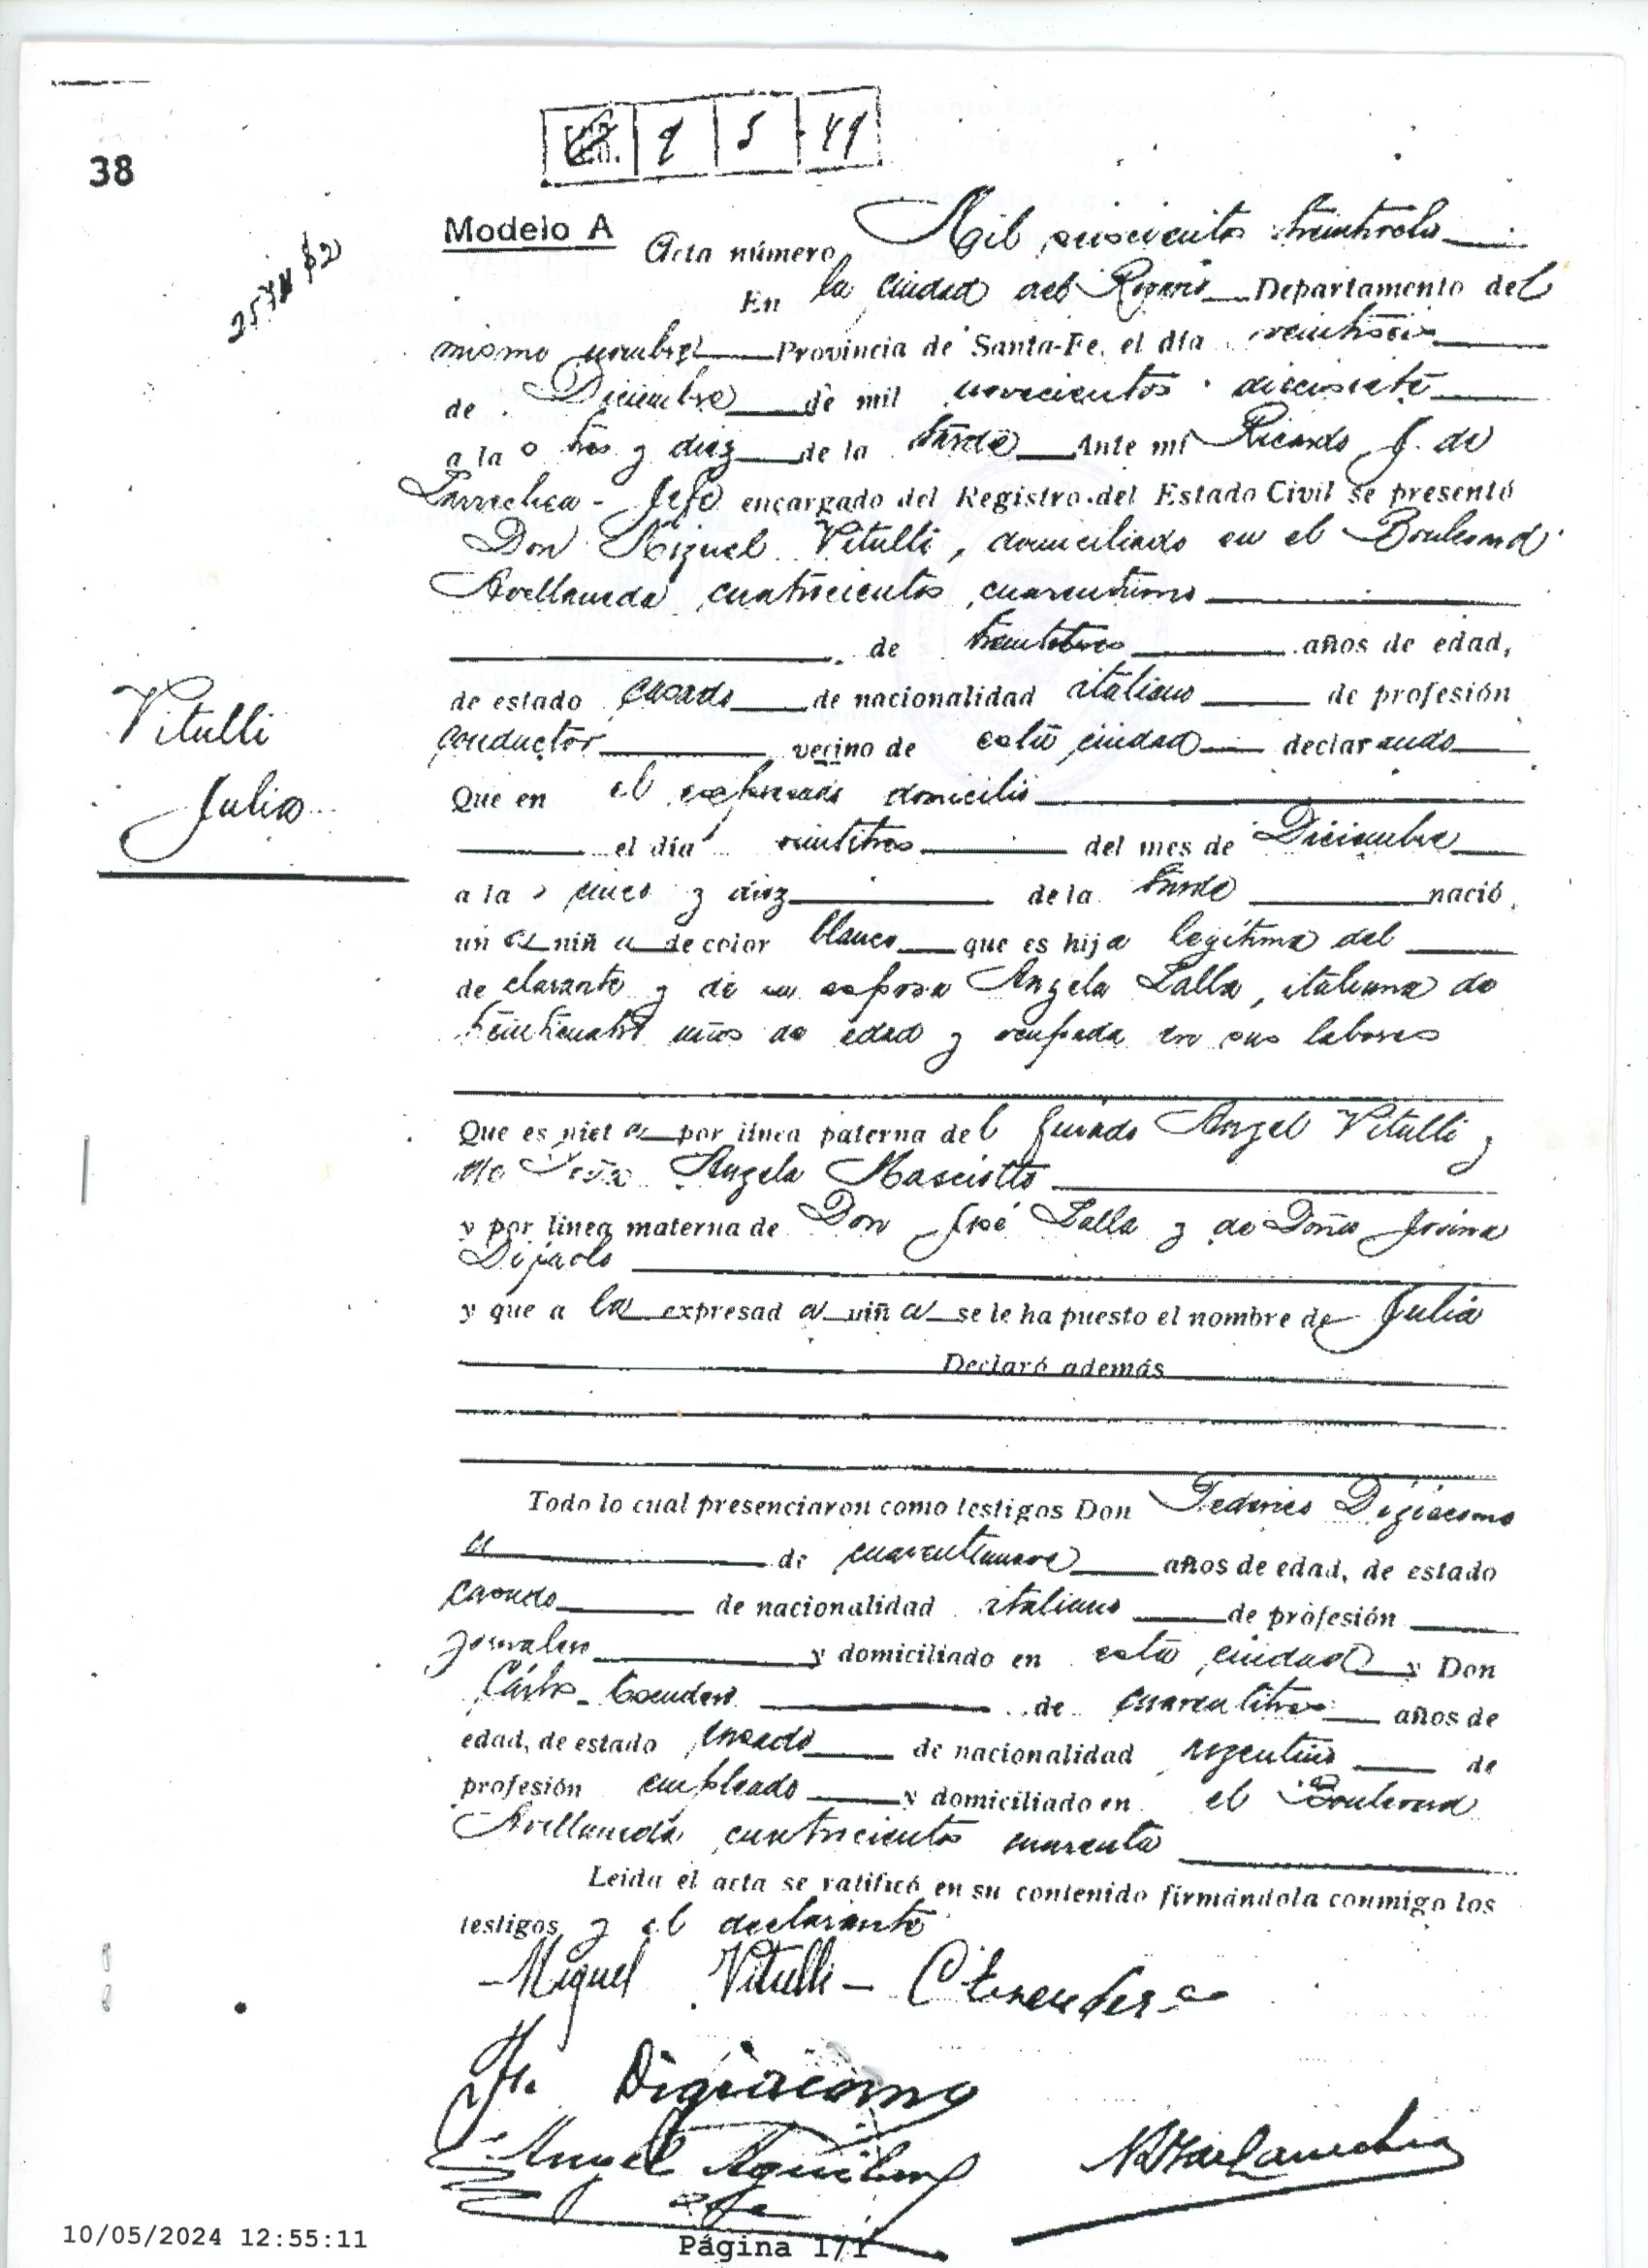 38
9 5 41
Modelo A
Acta número Mil seiscientos treintiocho
En la ciudad del Rosario Departamento del
mismo nombre Provincia de Santa-Fe, el día veintiseis
de Diciembre de mil novecientos diecisiete
a las tres y diez de la tarde Ante mí Ricardo J. de
Larrechea - Jefe encargado del Registro del Estado Civil se presentó
Don Miguel Vitulli, domiciliado en el Boulevard
Avellaneda cuatrocientos cuarentiuno
de treintitres años de edad,
de estado casado de nacionalidad italiano de profesión
conductor vecino de esta ciudad declarando
Vitulli
Julia
Que en el expresado domicilio
el día veintitres del mes de Diciembre
a las cinco y diez de la tarde nació
una niña de color blanco que es hija legítima del
declarante y de su esposa Angela Lalla, italiana de
treinticuatro años de edad y ocupada en sus labores
Que es nieta por línea paterna del finado Angel Vitulli y
de Doña Angela Masciotto
y por línea materna de Don José Lalla y de Doña
y que a la expresada niña se le ha puesto el nombre de Julia
Declaró además
Todo lo cual presenciaron como testigos Don Federico Digiacomo
de cuarentinueve años de edad, de estado
casado de nacionalidad italiano de profesión
jornalero y domiciliado en esta ciudad y Don
Carlos de cuarentitres años de
edad, de estado casado de nacionalidad argentino de
profesión empleado y domiciliado en el Boulevard
Avellaneda cuatrocientos cuarenta
Leída el acta se ratificó en su contenido firmándola conmigo los
testigos y el declarante
Miguel Vitulli
Digiacomo
Angel
10/05/2024 12:55:11
Página 1/1